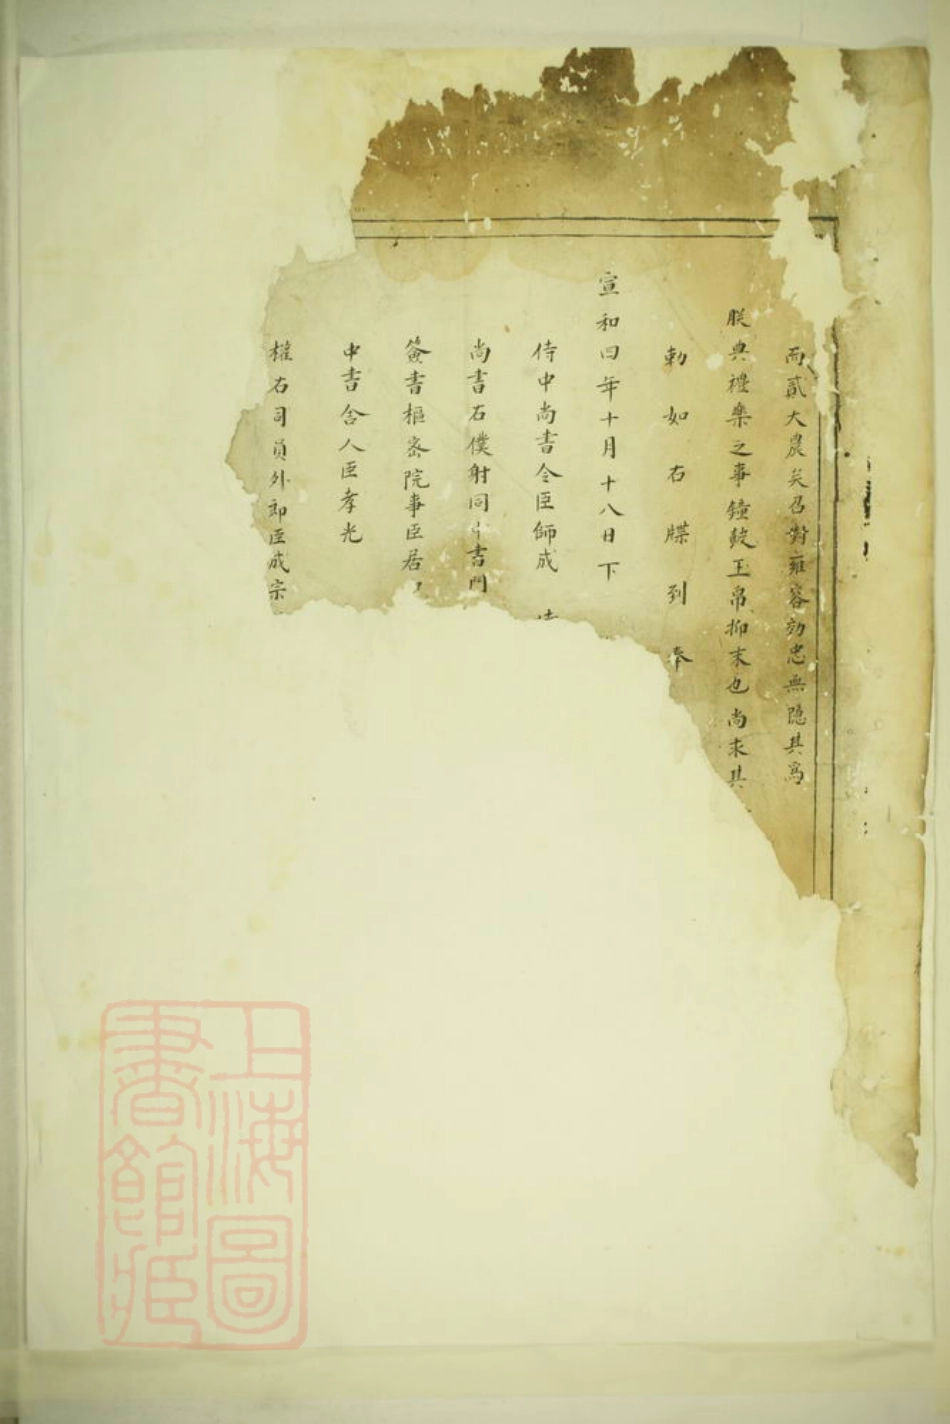 而貳大農矣召對雍容効忠無隱其爲
朕典禮樂之事鐘鼓玉帛抑末也尚求其
勅如右牒到奉
宣和四年十月十八日下
侍中尚書令臣師成
尚書右僕射同中書門
簽書樞密院事臣居
中書舍人臣孝光
權右司員外郎臣成宗
上海圖書館藏